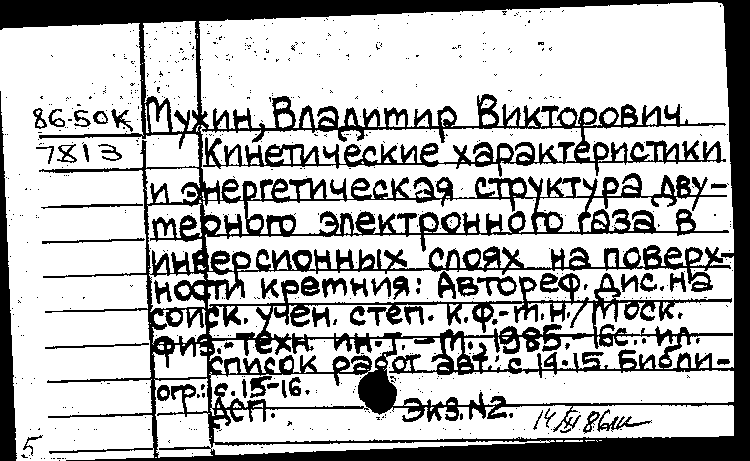 86-50К Мухин, Владимир Викторович.
7813 Кинетические характеристики
и энергетическая структура дву-
мерного электронного газа в
инверсионных слоях на поверх-
ности кремния: Автореф. дис. на
соиск. учен. степ. к.ф.-т.н./Моск.
физ.-техн. ин-т. - М., 1985.-16с.: ил.
список работ авт.: с.14-15. Библи-
огр.: с.15-16.
ДСП. Экз.№2.
5